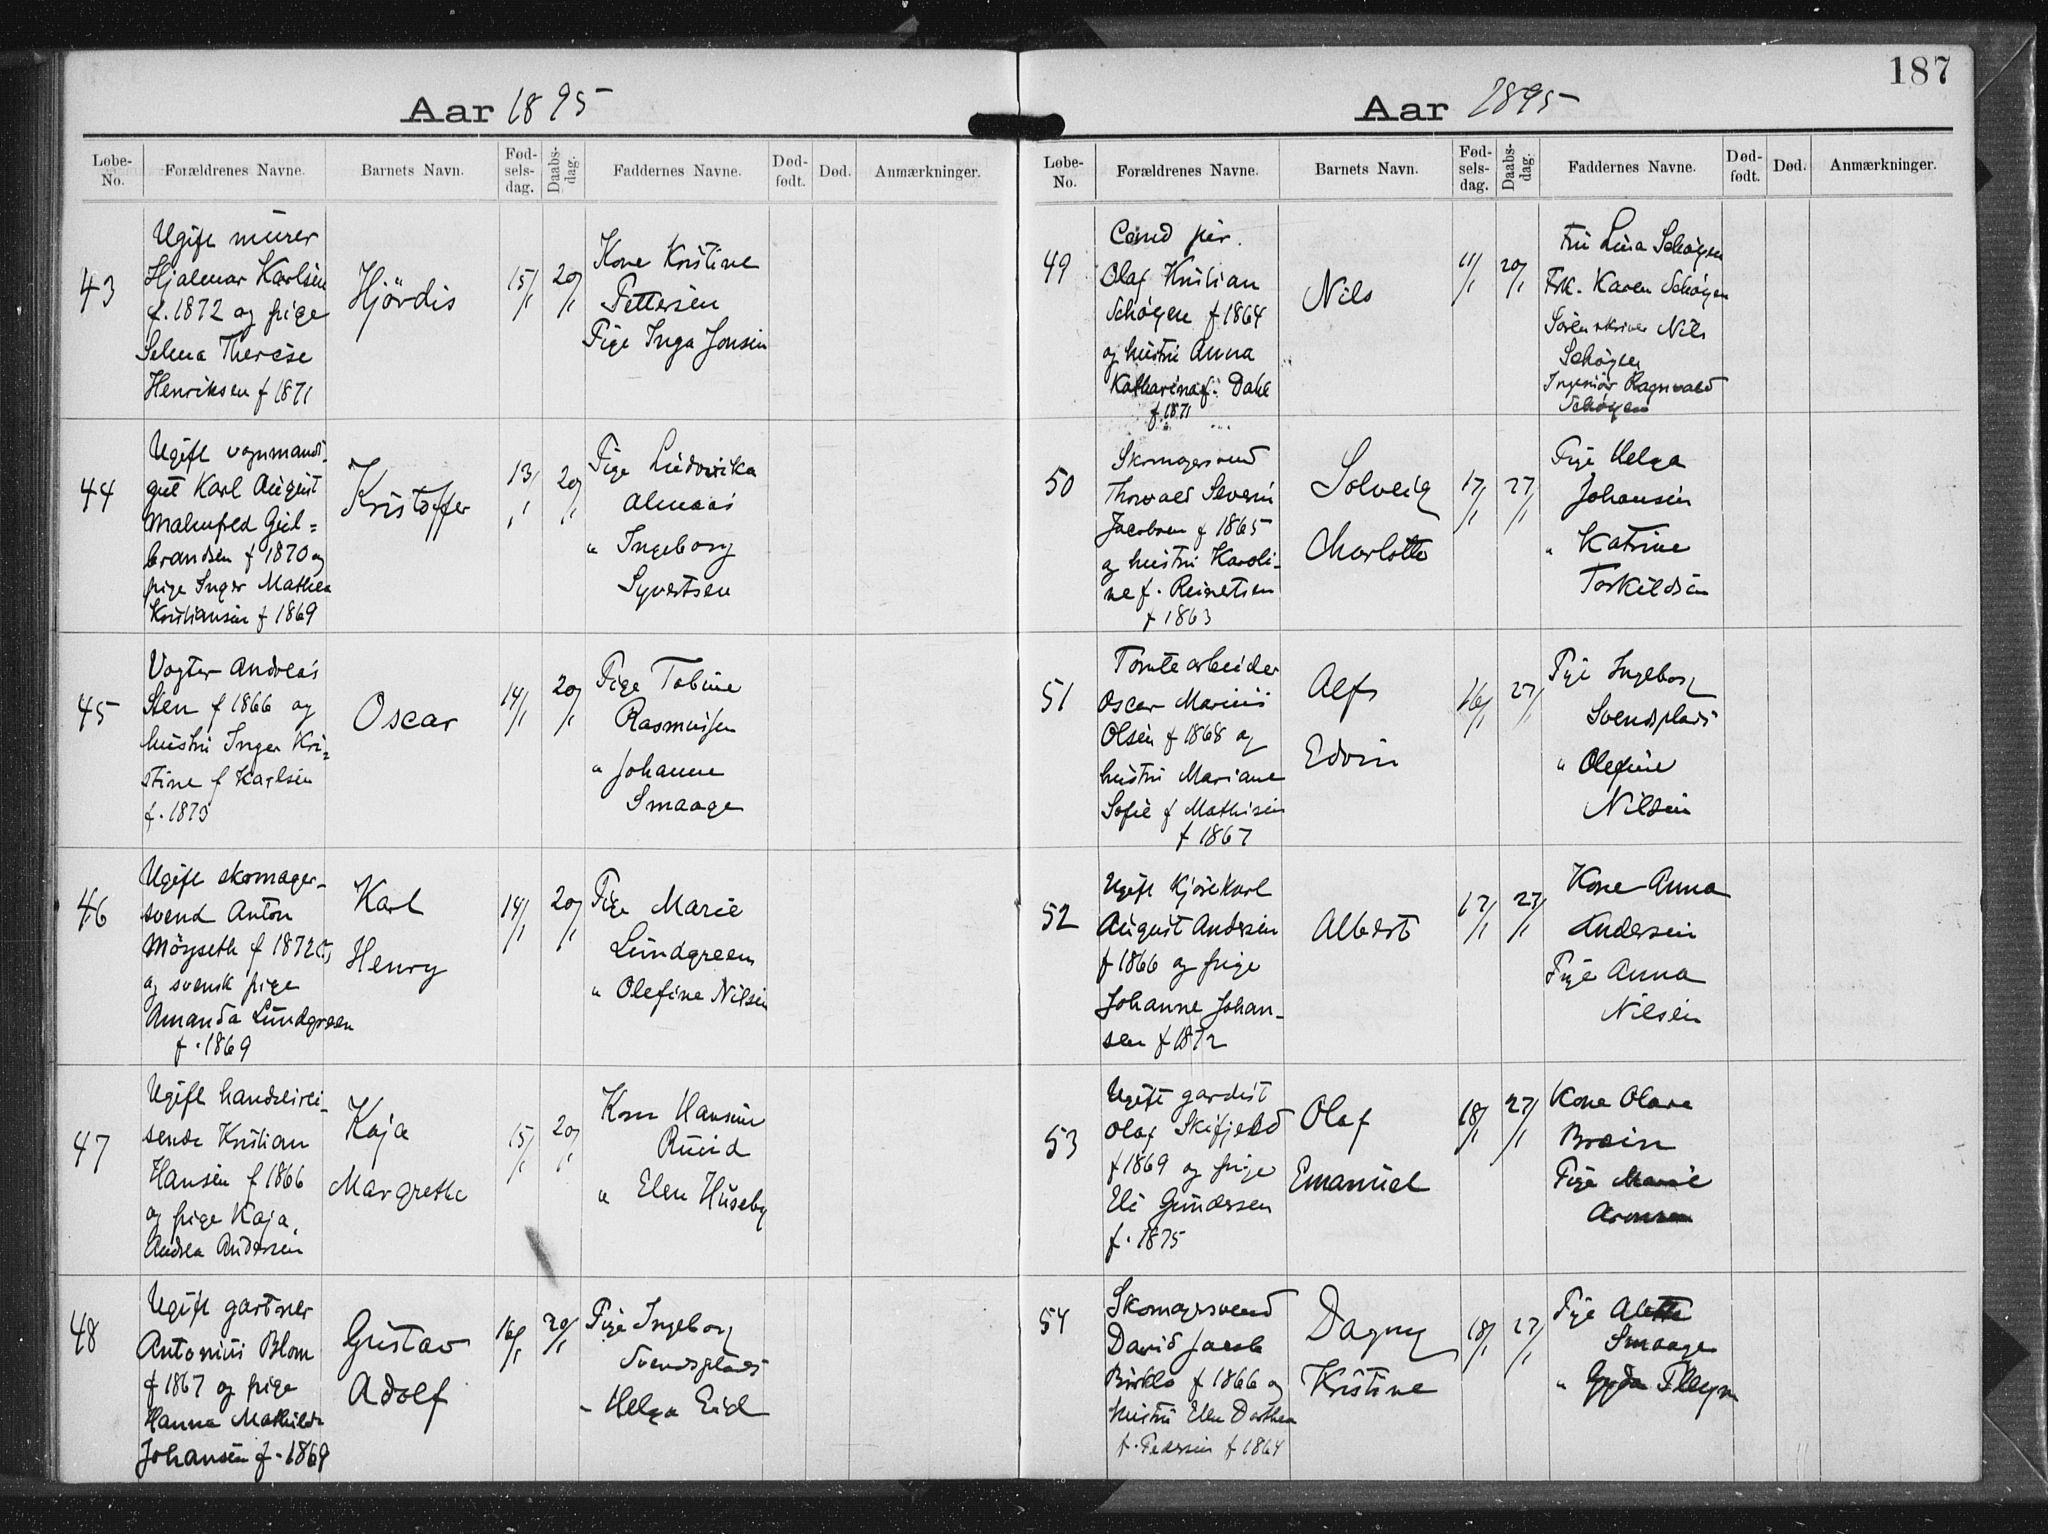 Aar 1895
Løbe-No. Forældrenes Navne. Barnets Navn. Fød-sels-dag. Daabs-dag. Faddernes Navne. Død-født. Død. Anmærkninger.
43
Ugift murer
Hjalmar Karlsen
f. 1872 og pige
Selma Therése
Henriksen f 1871
Hjördis
15/1
20/1
Kone Kristine
Pettersen
Pige Inga Jonsen
44
Ugift vognmands-
gut Karl August
Malmfred Gul=
brandsen f 1870 og
pige Inger Mathea
Kristiansen f 1869
Kristoffer
13/1
20/1
Pige Ludovika
Almaas
" Ingeborg
Syvertsen
45
Vogter Andreas
Sten f 1866 og
hustru Inger Kri=
stine f Karlsen
f. 1873
Oscar
14/1
20/1
Pige Tobine
Rasmussen
" Johanne
Smaage
46
Ugift skomager-
svend Anton
Möyseth f 1872
og svensk pige
Amanda Lundgreen
f. 1869
Karl
Henry
14/1
20/1
Pige Marie
Lundgreen
" Olefine Nilsen
47
Ugift handelsrei-
sende Kristian
Hansen f 1866
og pige Kaja
Andrea Andersen
Kaja
Margrethe
15/1
20/1
Kone Hansine
Ruud
" Elen Huseby
48
Ugift gartner
Antonius Blom
f 1867 og pige
Hanna Mathilde
Johansen f. 1869
Gustav
Adolf
16/1
20/1
Pige Ingeborg
Svendsplads
- Helga Eid
187
Aar 1895
Løbe-No. Forældrenes Navne. Barnets Navn. Fød-sels-dag. Daabs-dag. Faddernes Navne. Død-født. Død. Anmærkninger.
49
Cand jur.
Olaf Kristian
Schøyen f 1864
og hustru Anna
Katharina f. Dahl
f. 1871
Nils
11/1
20/1
Fru Lina Schøyen
Frk. Karen Schøyen
Sorenskriver Nils
Schøyen
Ingeniør Ragnvald
Schøyen
50
Skomagersvend
Thorvald Severin
Jacobsen f 1865
og hustru Karoli-
ne f. Reinertsen
f 1863
Solveig
Charlotte
17/1
27/1
Pige Helga
Johansen
" Katrine
Torkildsen
51
Tomtearbeider
Oscar Marius
Olsen f 1868 og
hustru Mariane
Sofie f Mathisen
f 1867
Alf
Edvin
16/1
27/1
Pige Ingeborg
Svendsplads
" Olefine
Nilsen
52
Ugift Kjörekarl
August Andersen
f 1866 og pige
Johanne Johan-
sen f 1872
Albert
17/1
27/1
Kone Anna
Andersen
Pige Anna
Nilsen
53
Ugift gardist
Olaf Skifjeld
f 1869 og pige
Eli Gundersen
f. 1875
Olaf
Emanuel
18/1
27/1
Kone Olava
Pige Marie
Aronsen
54
Skomagersvend
David Jacob
Birklo f 1866 og
hustru Elen Dorthea
f. Pedersen f 1864
Dagny
Kristine
18/1
27/1
Pige Alette
Smaage
" Gyda